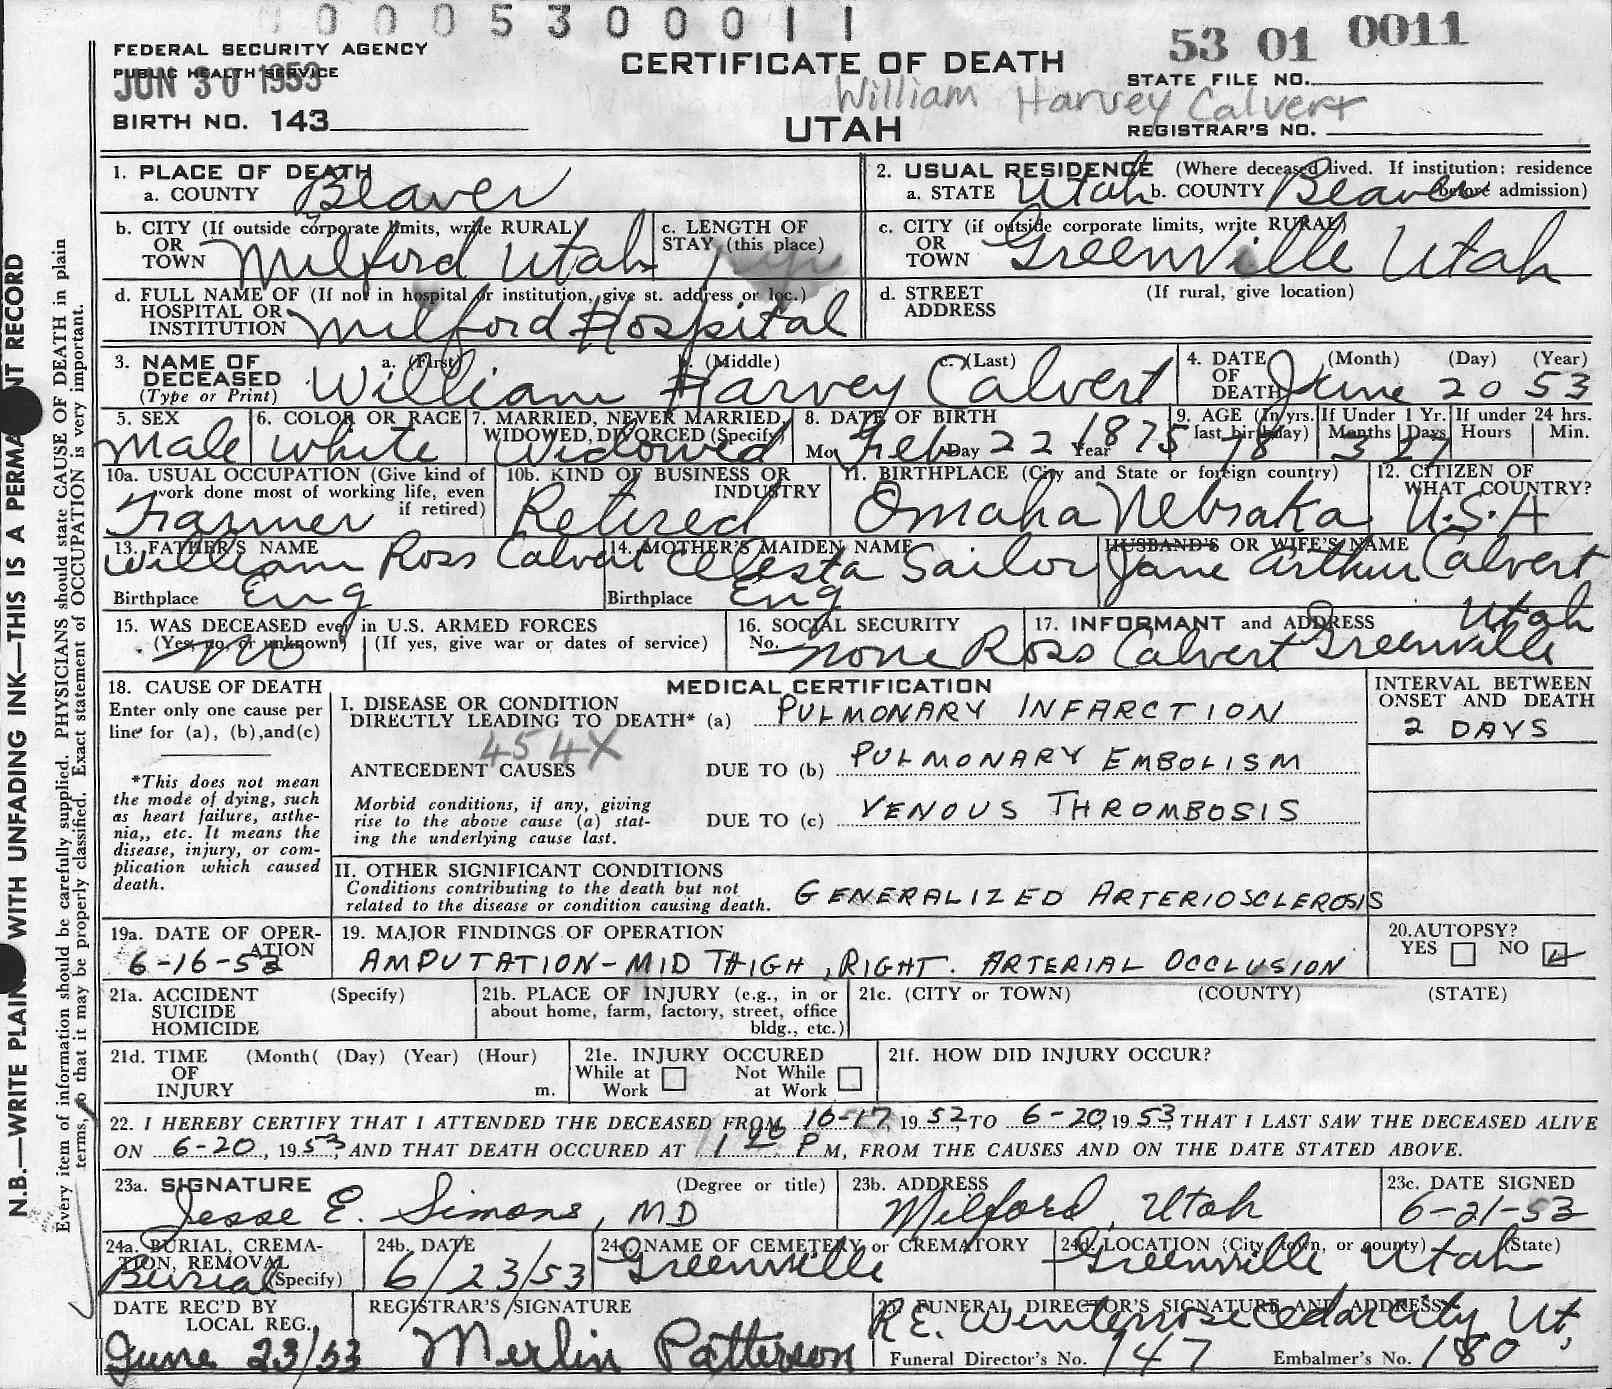 0 0 0 5 3 0 0 0 1 1
53 01 0011
FEDERAL SECURITY AGENCY
PUBLIC HEALTH SERVICE
JUN 30 1953
BIRTH NO. 143
CERTIFICATE OF DEATH
William Harvey Calvert
UTAH
STATE FILE NO.
REGISTRAR'S NO.
N.B.—WRITE PLAIN WITH UNFADING INK—THIS IS A PERMA NT RECORD
Every item of information should be carefully supplied. PHYSICIANS should state CAUSE OF DEATH in plain
terms, so that it may be properly classified. Exact statement of OCCUPATION is very important.
1. PLACE OF DEATH
a. COUNTY Beaver
2. USUAL RESIDENCE (Where deceased lived. If institution: residence
a. STATE Utah b. COUNTY Beaver before admission)
b. CITY (If outside corporate limits, write RURAL)
OR
TOWN Milford Utah
c. LENGTH OF
STAY (this place)
c. CITY (if outside corporate limits, write RURAL)
OR
TOWN Greenville Utah
d. FULL NAME OF (If not in hospital or institution, give st. address or loc.)
HOSPITAL OR
INSTITUTION Milford Hospital
d. STREET (If rural, give location)
ADDRESS
3. NAME OF a. (First) b. (Middle) c. (Last)
DECEASED
(Type or Print) William Harvey Calvert
4. DATE (Month) (Day) (Year)
OF
DEATH June 20 53
5. SEX
Male
6. COLOR OR RACE
White
7. MARRIED, NEVER MARRIED,
WIDOWED, DIVORCED (Specify)
Widowed
8. DATE OF BIRTH
Mo Feb Day 22 Year 1875
9. AGE (In yrs. last birthday) 78
If Under 1 Yr.
Months 3 Days 27
If under 24 hrs.
Hours Min.
10a. USUAL OCCUPATION (Give kind of
work done most of working life, even
if retired)
Farmer
10b. KIND OF BUSINESS OR
INDUSTRY
Retired
11. BIRTHPLACE (City and State or foreign country)
Omaha Nebraka
12. CITIZEN OF
WHAT COUNTRY?
U.S.A
13. FATHER'S NAME
William Ross Calvert
Birthplace Eng
14. MOTHER'S MAIDEN NAME
Celesta Sailor
Birthplace Eng
HUSBAND'S OR WIFE'S NAME
Jane Arthur Calvert
15. WAS DECEASED ever in U.S. ARMED FORCES
(Yes, no, or unknown) (If yes, give war or dates of service)
No
16. SOCIAL SECURITY
No. None
17. INFORMANT and ADDRESS Utah
Ross Calvert Greenville
18. CAUSE OF DEATH
Enter only one cause per
line for (a), (b), and (c)
*This does not mean
the mode of dying, such
as heart failure, asthe-
nia,, etc. It means the
disease, injury, or com-
plication which caused
death.
MEDICAL CERTIFICATION
I. DISEASE OR CONDITION
DIRECTLY LEADING TO DEATH* (a) PULMONARY INFARCTION
454X
ANTECEDENT CAUSES DUE TO (b) PULMONARY EMBOLISM
Morbid conditions, if any, giving
rise to the above cause (a) stat-
ing the underlying cause last.
DUE TO (c) VENOUS THROMBOSIS
INTERVAL BETWEEN
ONSET AND DEATH
2 DAYS
II. OTHER SIGNIFICANT CONDITIONS
Conditions contributing to the death but not
related to the disease or condition causing death. GENERALIZED ARTERIOSCLEROSIS
19a. DATE OF OPER-
ATION
6-16-53
19. MAJOR FINDINGS OF OPERATION
AMPUTATION-MID THIGH, RIGHT. ARTERIAL OCCLUSION
20. AUTOPSY?
YES NO
21a. ACCIDENT (Specify)
SUICIDE
HOMICIDE
21b. PLACE OF INJURY (e.g., in or
about home, farm, factory, street, office
bldg., etc.)
21c. (CITY or TOWN) (COUNTY) (STATE)
21d. TIME (Month( (Day) (Year) (Hour)
OF
INJURY m.
21e. INJURY OCCURED
While at Work Not While at Work
21f. HOW DID INJURY OCCUR?
22. I HEREBY CERTIFY THAT I ATTENDED THE DECEASED FROM 10-17, 1952, TO 6-20, 1953, THAT I LAST SAW THE DECEASED ALIVE
ON 6-20, 1953, AND THAT DEATH OCCURED AT 1 P M, FROM THE CAUSES AND ON THE DATE STATED ABOVE.
23a. SIGNATURE (Degree or title)
Jesse E. Simons, MD
23b. ADDRESS
Milford, Utah
23c. DATE SIGNED
6-21-53
24a. BURIAL, CREMA-
TION, REMOVAL
Burial (Specify)
24b. DATE
6/23/53
24c. NAME OF CEMETERY or CREMATORY
Greenville
24d. LOCATION (City, town, or county) (State)
Greenville Utah
DATE REC'D BY
LOCAL REG.
June 23/53
REGISTRAR'S SIGNATURE
Merlin Patterson
25. FUNERAL DIRECTOR'S SIGNATURE AND ADDRESS
R.E. Winterrose Cedar City Ut,
Funeral Director's No. 147 Embalmer's No. 180